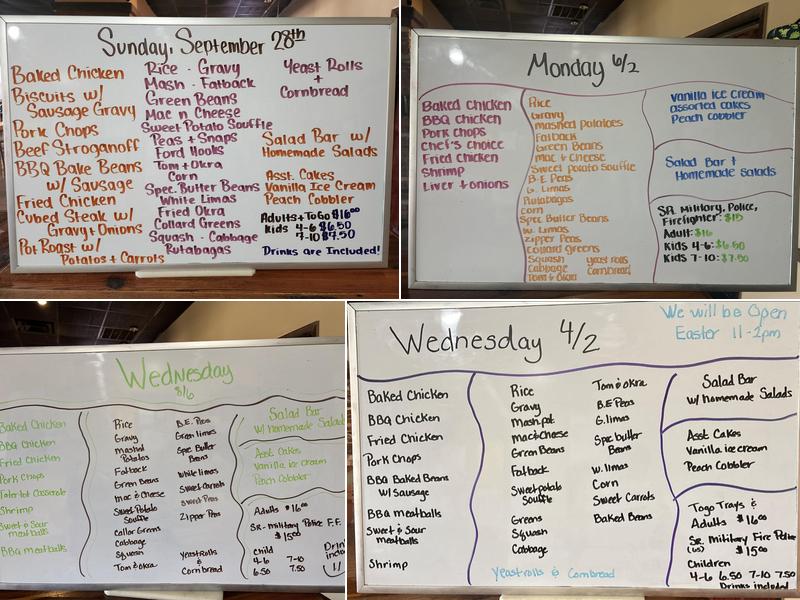 Sunday, September 28th
Baked Chicken
Biscuits w/
Sausage Gravy
Pork Chops
Beef Stroganoff
BBQ Bake Beans
w/ Sausage
Fried Chicken
Cubed Steak w/
Gravy + Onions
Pot Roast w/
Potatos + Carrots
Rice - Gravy
Mash - Fatback
Green Beans
Mac n Cheese
Sweet Potato Souffle
Peas + Snaps
Ford Hooks
Tom + Okra
Corn
Spec. Butter Beans
White Limas
Fried Okra
Collard Greens
Squash - Cabbage
Rutabagas
Yeast Rolls
+
Cornbread
Salad Bar w/
Homemade Salads
Asst. Cakes
Vanilla Ice Cream
Peach Cobbler
Adults + ToGo $16.00
Kids 4-6 $6.50
7-10 $7.50
Drinks are Included!
Monday 6/2
Baked Chicken
BBQ Chicken
Pork chops
Chef's choice
Fried chicken
Shrimp
Liver + onions
Rice
Gravy
mashed potatoes
Fatback
Green Beans
mac + cheese
Sweet potato souffle
B.E. Peas
G. Limas
Rutabagas
corn
Spec Butter Beans
w. Limas
zipper Peas
Collard greens
Squash yeast rolls
Cabbage Cornbread
Tom & okra
Vanilla Ice Cream
assorted cakes
Peach cobbler
Salad Bar +
Homemade salads
SR. Military, Police,
Firefighter: $15
Adult: $16
Kids 4-6: $6.50
Kids 7-10: $7.50
Wednesday
8/6
Baked Chicken
BBQ Chicken
Fried Chicken
Pork Chops
Tatertot Casserole
Shrimp
Sweet & Sour
meatballs
BBQ meatballs
Rice
Gravy
Mashd
Potatos
Fatback
Green Beans
mac & Cheese
Sweet Potato
Souffle
Collar Greens
Cabbage
Squash
Tom & okra
B.E. Peas
Green limas
Spec Butter
Beans
white limas
Sweet Carrots
Sweet Peas
Zipper Peas
Yeastrolls
&
Cornbread
Salad Bar
w/ Homemade Salad
Asst Cakes
Vanilla ice cream
Peach Cobbler
Adults $16.00
Sr. military Police F.F.
$15.00
Child
4-6 7-10
6.50 7.50
Wednesday 4/2
We will be Open
Easter 11-2pm
Baked Chicken
BBQ Chicken
Fried Chicken
Pork Chops
BBQ Baked Beans
w/ Sausage
BBQ meatballs
Sweet & Sour
meatballs
Shrimp
Rice
Gravy
Mash pot
mac & cheese
Green Beans
Fatback
Sweet potato
Souffle
Greens
Squash
Cabbage
Tom & okra
B.E Peas
G. limas
Spec butter
Beans
W. limas
Corn
Sweet Carrots
Baked Beans
Yeast rolls & Cornbread
Salad Bar
w/ Homemade Salads
Asst Cakes
Vanilla ice cream
Peach Cobbler
Togo Trays &
Adults $16.00
Sr. Military Fire Police
(65) $15.00
Children
4-6 6.50 7-10 7.50
Drinks included